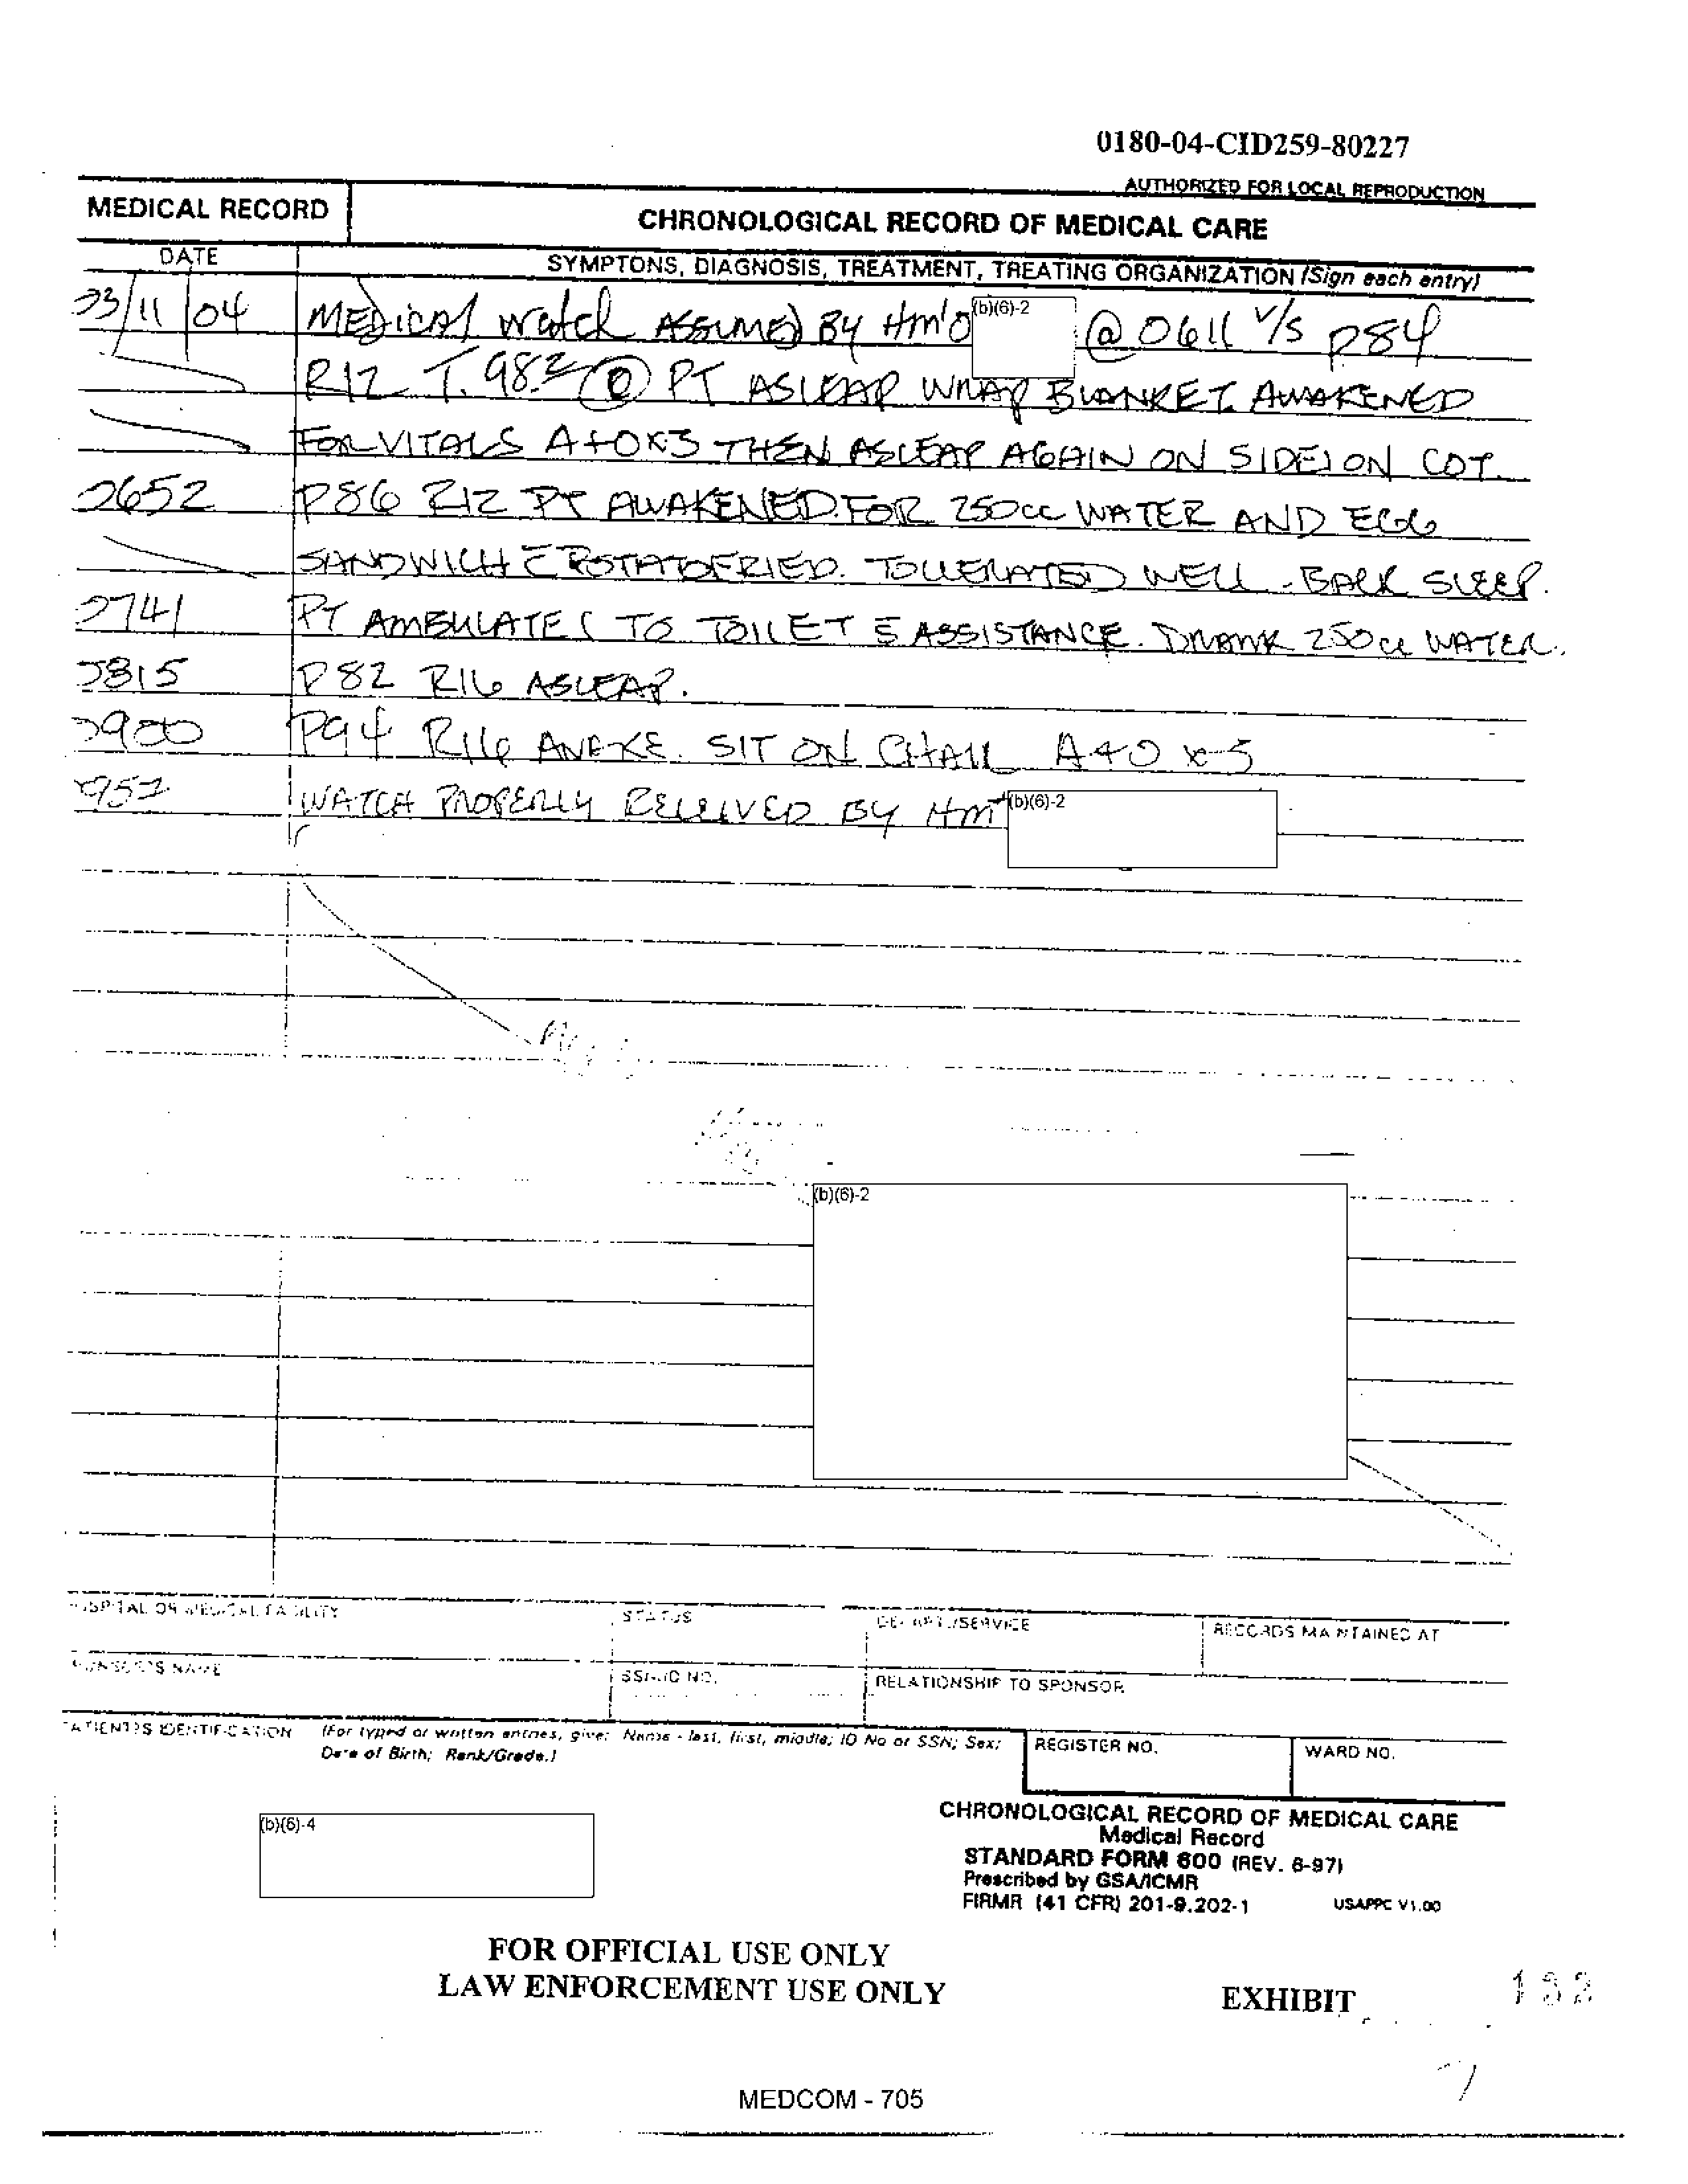 0180-04-CID259-80227
AUTHORIZED FOR LOCAL REPRODUCTION
MEDICAL RECORD
CHRONOLOGICAL RECORD OF MEDICAL CARE
DATE
SYMPTONS, DIAGNOSIS, TREATMENT, TREATING ORGANIZATION (Sign each entry)
03/11/04 MEDICAL Watch ASSUMED BY Hm'O (b)(6)-2 @ 0611 V/S P84
R12 T. 98.2 PT ASLEAP WRAP BLANKET. AWAKENED
FOR VITALS A+OX3 THEN ASLEAP AGAIN ON SIDE ON COT.
0652 P86 R12 PT AWAKENED FOR 250cc WATER AND EGG
SANDWICH C̄ POTATOFRIED. TOLLERATED WELL - BACK SLEEP.
0741 PT AMBULATES TO TOILET S̄ ASSISTANCE. DRANK 250cc WATER.
0815 P82 R16 ASLEAP.
0900 P94 R16 AWAKE. SIT ON CHAIR A+O x3
0952 WATCH PROPERLY RELIEVED BY HM (b)(6)-2
(b)(6)-2
HOSPITAL OR MEDICAL FACILITY
STATUS
DEPART./SERVICE
RECORDS MAINTAINED AT
SPONSOR'S NAME
SSN/ID NO.
RELATIONSHIP TO SPONSOR
PATIENT'S IDENTIFICATION (For typed or written entries, give: Name - last, first, middle; ID No or SSN; Sex;
Date of Birth; Rank/Grade.)
REGISTER NO.
WARD NO.
(b)(6)-4
CHRONOLOGICAL RECORD OF MEDICAL CARE
Medical Record
STANDARD FORM 600 (REV. 6-97)
Prescribed by GSA/ICMR
FIRMR (41 CFR) 201-9.202-1
USAPPC V1.00
FOR OFFICIAL USE ONLY
LAW ENFORCEMENT USE ONLY
EXHIBIT
MEDCOM - 705